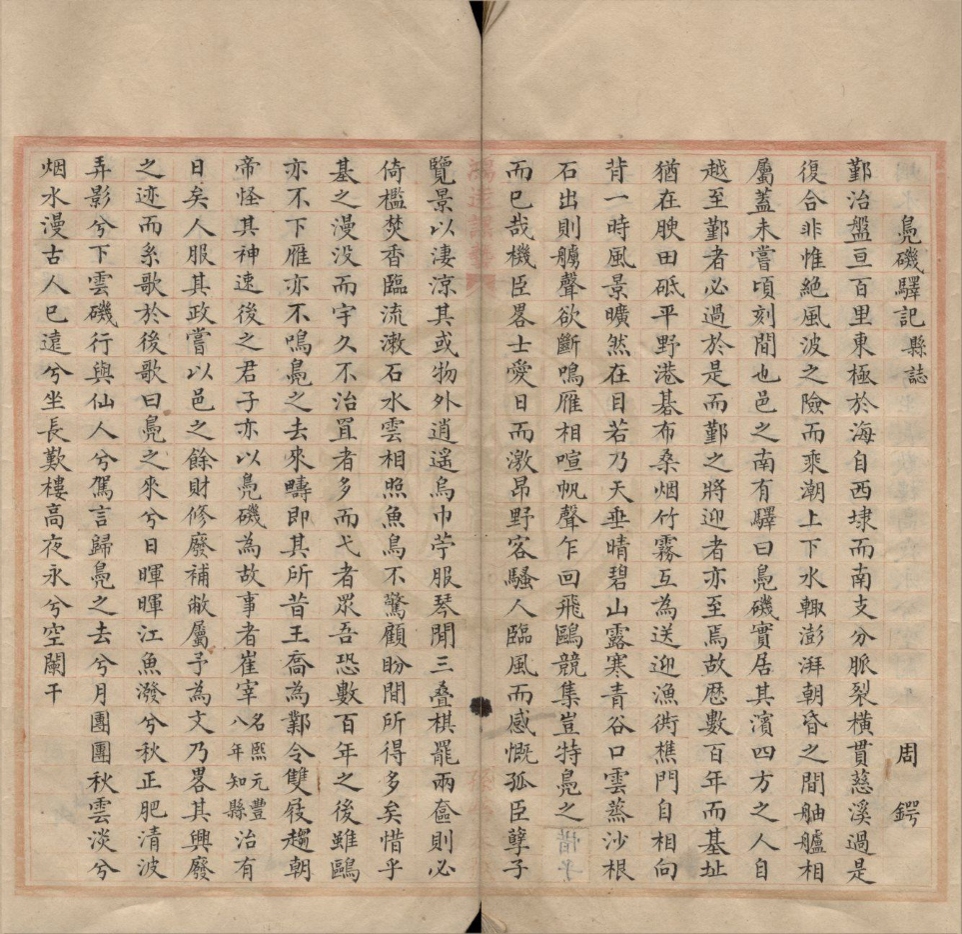 鳧磯驛記縣誌 周鍔
鄞治盤亘百里東極於海自西埭而南支分脈裂橫貫慈溪過是
復合非惟絕風波之險而乘潮上下水輙澎湃朝昏之間舳艫相
屬蓋未嘗頃刻間也邑之南有驛曰鳧磯實居其濱四方之人自
越至鄞者必過於是而鄞之將迎者亦至焉故歴數百年而基址
猶在腴田砥平野港碁布桑烟竹霧互為送迎漁衖樵門自相向
背一時風景曠然在目若乃天垂晴碧山露寒青谷口雲蒸沙根
石出則艣聲欲斷鳴雁相喧帆聲乍回飛鷗競集豈特鳧之
而已哉機臣畧士愛日而激昂野客騷人臨風而感慨孤臣孽子
覽景以淒涼其或物外逍遥烏巾苧服琴聞三叠棋罷兩奩則必
倚檻焚香臨流漱石水雲相照魚鳥不驚顧盼間所得多矣惜乎
基之漫没而宇久不治罝者多而弋者眾吾恐數百年之後雖鷗
亦不下雁亦不鳴鳧之去來疇即其所昔王喬為鄴令雙屐趨朝
帝怪其神速後之君子亦以鳧磯為故事者崔宰名熙元豐八年知縣治有
日矣人服其政嘗以邑之餘財修廢補敝屬予為文乃畧其興廢
之迹而系歌於後歌曰鳧之來兮日暉暉江魚潑兮秋正肥清波
弄影兮下雲磯行與仙人兮駕言歸鳧之去兮月團團秋雲淡兮
烟水漫古人已遠兮坐長歎樓高夜永兮空闌干